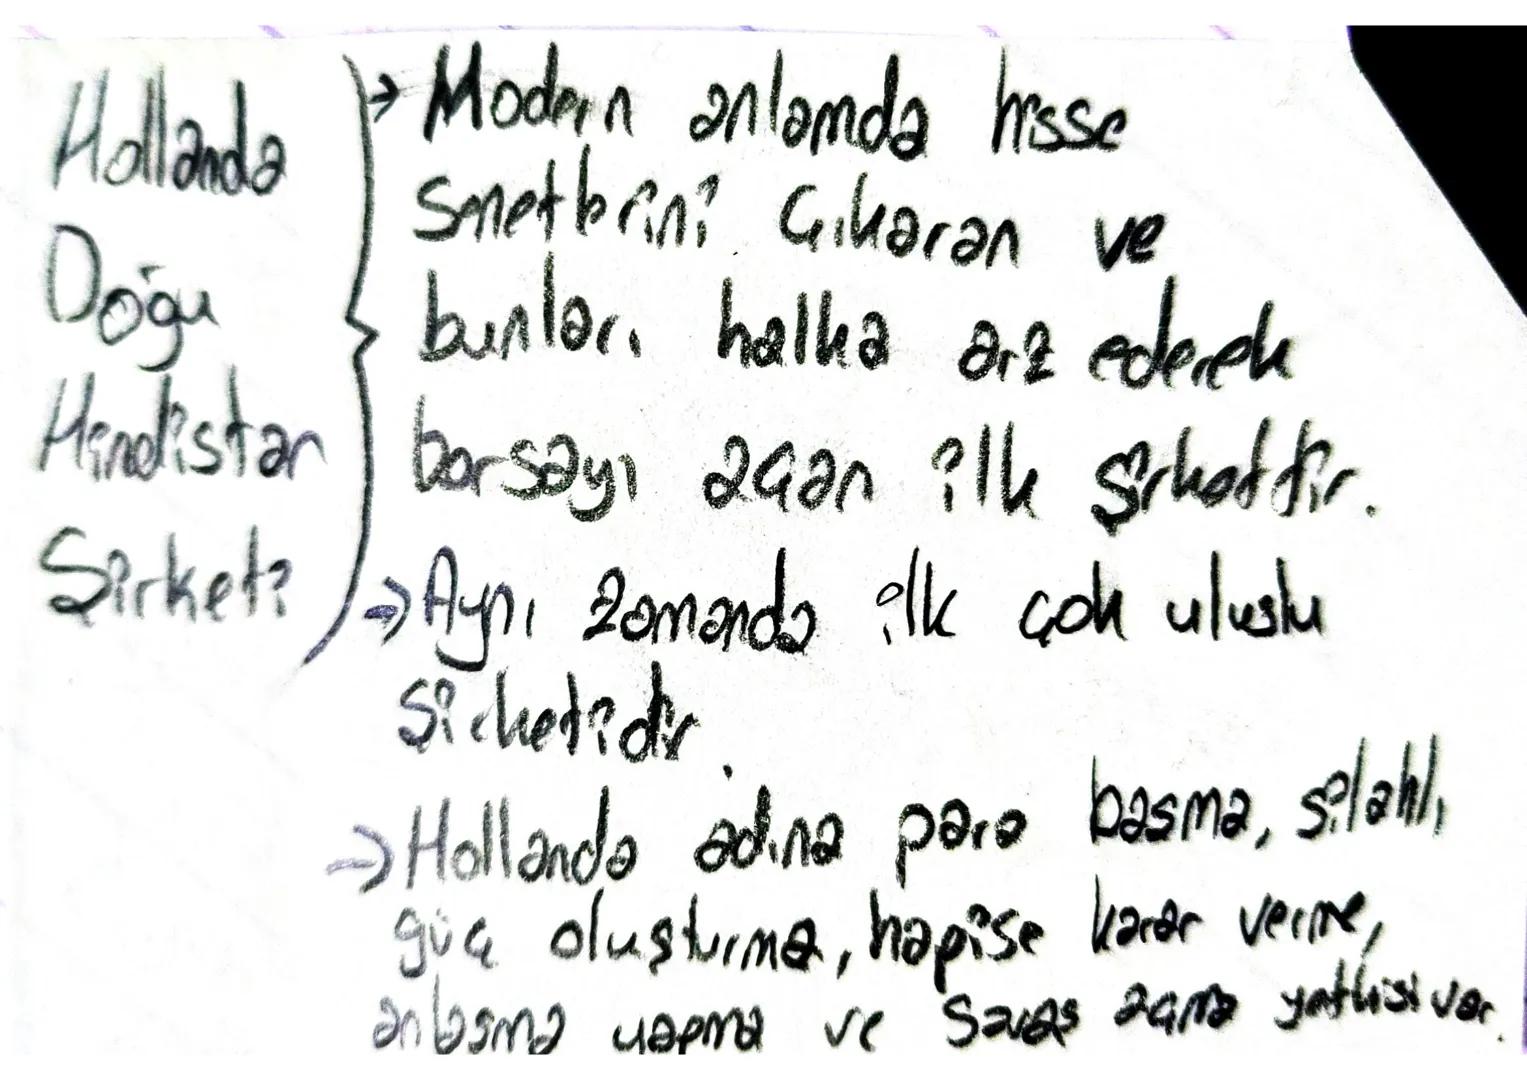 Hollanda
Doğu
Hindistan
Şirketi
→ Modern anlamda hisse
senetlerini çıkaran ve
bunları halka arz ederek
borsayı açan ilk şirkettir.
→ Aynı zamanda ilk çok uluslu
şirketidir.
→ Hollanda adına para basma, silahlı
güç oluşturma, hapise karar verme,
anlaşma yapma ve savaş açma yetkisi var.